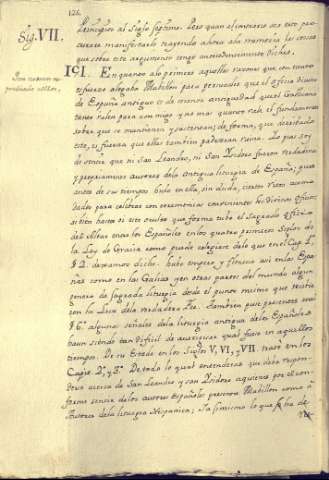 126.
Sig. VII.
Principios del Siglo septimo. Pero quan el contrario sea esto pro-
curare manifestarlo trayendo ahora a la memoria las cosas
que sobre este argumento tengo antecedentemente dichas.
ICI. En quanto a lo primero aquellas razones que con tanto
esfuerzo alegaba Mabillon para persuadir que el oficio Divino
de España antiguo es de menor antiguedad que el Gallicano
tienen valor para con migo y no mas quanto vale el fundamento
sobre que se mantienen y sustentan; de forma, que derribado
este, es fuerza que ellas tambien padezcan ruina. Lo pues soy
de sentir que ni San Leandro, ni San Isidoro fueron verdadera
y propriamente autores de la antigua liturgia de España; pues
antes de sus tiempos hubo en ella, sin duda, ciertos ritos acomo-
dados para celebrar con ceremonias convenientes los Divinos oficios
si bien hasta es oculto que forma tubo el Sagrado oficio
del Altar entre los Españoles en los quatro primeros Siglos de
la Ley de Gracia como puede colegirse de lo que en el Cap. I.
§ 2. dexamos dicho. hubo empero y florecio asi en las Espa-
ñas como en las Galias y en otras partes del mundo algun
genero de sagrada liturgia desde el punto mismo que
con la luz de la verdadera Fee. Tambien puse presentes en el
§ 6. algunas señales de la liturgia antigua de los Españoles
haun siendo tan dificil de averiguar qual fuese en aquellos
tiempos. De su Estado en los Siglos V, VI, y VII traté en los
Capis. 2, y 3. De todo lo qual entenderia que deba respon-
derse acerca de San Leandro y San Isidoro aquienes por el con-
forme sentir de los autores Españoles presenta Mabillon como a
Autores de la liturgia Hispanica; Y asimismo lo que se ha de